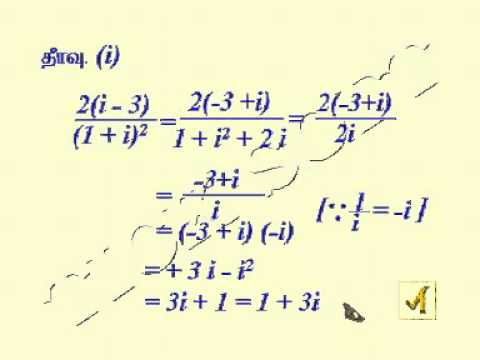 தீர்வு. (i)
2(i - 3)/(1 + i)² = 2(-3 +i)/1 + i² + 2 i = 2(-3+i)/2i
= -3+i/i
= (-3 + i) (-i) [∵ 1/i = -i ]
= + 3 i - i²
= 3i + 1 = 1 + 3i